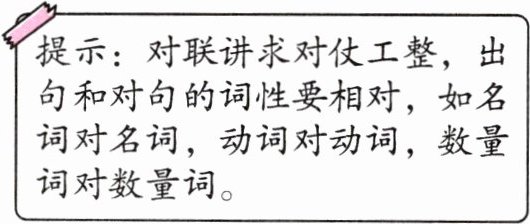 提示：对联讲求对仗工整，出
句和对句的词性要相对，如名
词对名词，动词对动词，数量
词对数量词。